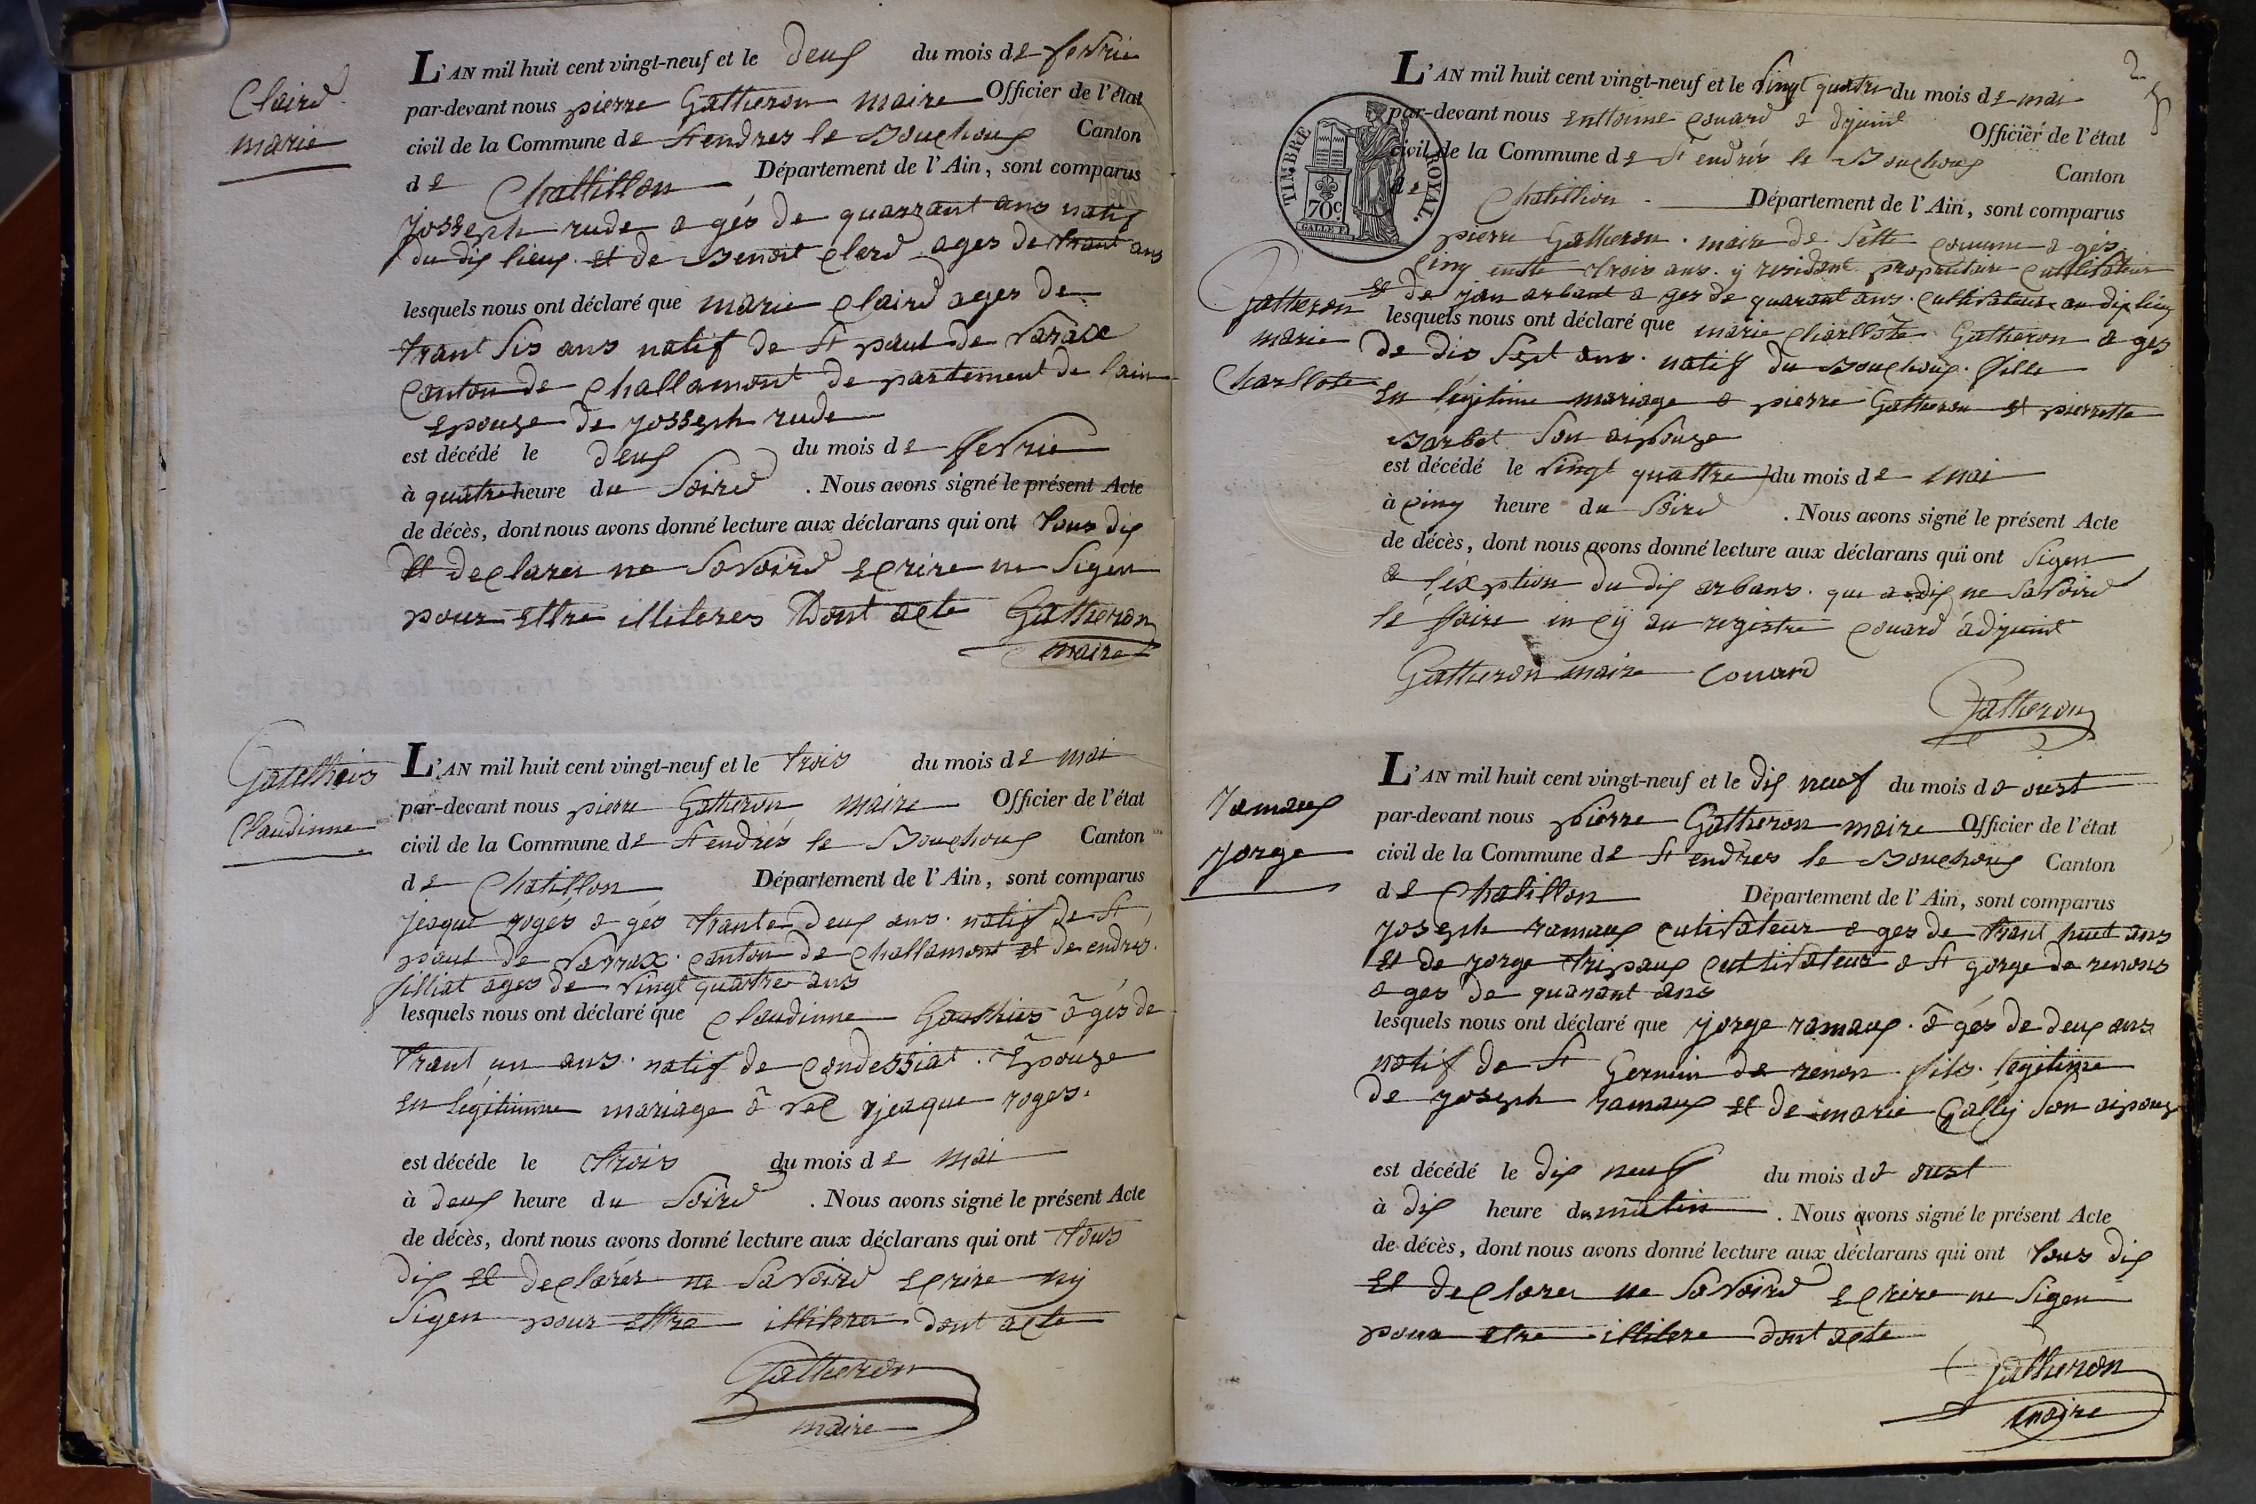 Claird
marie
L'AN mil huit cent vingt-neuf et le deux du mois de fevrie
par-devant nous pierre Gatheron maire Officier de l'état
civil de la Commune de St endres le Bouchoux Canton
de Chattillon Département de l'Ain, sont comparus
josseph rude a gés de quarrant ans natif
du dix lieux et de Benoit clerd ages de trant ans
lesquels nous ont déclaré que marie claird ages de
trant sis ans natif de St paul de Varaxe
canton de Challamont de partement de lain
epouze de josseph rude
est décédé le deux du mois de fevrie
à quatre heure du soird . Nous avons signé le présent Acte
de décès, dont nous avons donné lecture aux déclarans qui ont tous dix
et declarer ne savoird ecrire ne sigen
pour ettre illiteres dont acte Gatheron
maire
Gauttheis
Claudinne
L'AN mil huit cent vingt-neuf et le trois du mois de mai
par-devant nous pierre Gatheron maire Officier de l'état
civil de la Commune de St endrés le Bouchoux Canton
de Chatillon Département de l'Ain, sont comparus
jeaque rogés a gés trante deux ans natif de St
paul de Varrax canton de Challamont et de endrés
filliat ages de vingt quatre ans
lesquels nous ont déclaré que claudinne Gauthies a gés de
trant un ans natif de Condessiat Epouze
en legitimme mariage a vec jeaque roges.
est décéde le trois du mois de mai
à deux heure du soird . Nous avons signé le présent Acte
de décès, dont nous avons donné lecture aux déclarans qui ont tous
dix et declarér ne savoird ecrire ny
sigen pour ettre illitere dont acte
Gatheron
maire
2
TIMBRE ROYAL.
70c
L'AN mil huit cent vingt-neuf et le vingt quatre du mois de mai
par-devant nous enttoinne couard a djoint Officier de l'état
civil de la Commune de St endrés le Bouchoux
Canton
de Chatillion Département de l'Ain, sont comparus
pierre Gatheron maire de sette comune a gés
cinq ente trois ans y residant propriétaire cultivateur
et de jan arbant a ges de quarant ans cultivateur au dix lieu
Gatheron
marie
Charllote
lesquels nous ont déclaré que marie Charllote Gatheron a ges
de dis sept ans natif du Bouchoux fille
en légitime mariage a pierre Gatheron et pierrette
Barbet son aipouze
est décédé le vingt quattre du mois de mai
à cinq heure du soird . Nous avons signé le présent Acte
de décès, dont nous avons donné lecture aux déclarans qui ont sigen
a l'éxption du dix arbans que a dix ne savoird
le faire in cy au registre couard adjoint
Gatheron maire Couard
Gatheron
ramaux
jorge
L'AN mil huit cent vingt-neuf et le dix neuf du mois d'a oust
par-devant nous pierre Gatheron maire Officier de l'état
civil de la Commune de St endres le Bouchoux Canton
de Chatillon Département de l'Ain, sont comparus
joseph ramaux cutivateur a ges de trant huet ans
et de jorge tripaux cultivateur a St gorge de renons
a ges de quarant ans
lesquels nous ont déclaré que jorge ramaux a gés de deux ans
natif de St Germin de renon fils légitime
de joseph ramaux et de marie Gally son aipouze
est décédé le dix neuf du mois d'a oust
à dix heure du mattin . Nous avons signé le présent Acte
de décès, dont nous avons donné lecture aux déclarans qui ont tous dix
et declarer ne savoird ecrire ne sigen
pour etre illitere dont acte
Gatheron
maire